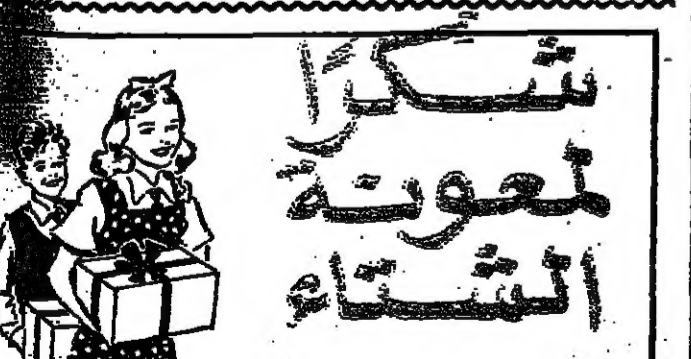 شكرًا
لمعونة
الشتاء